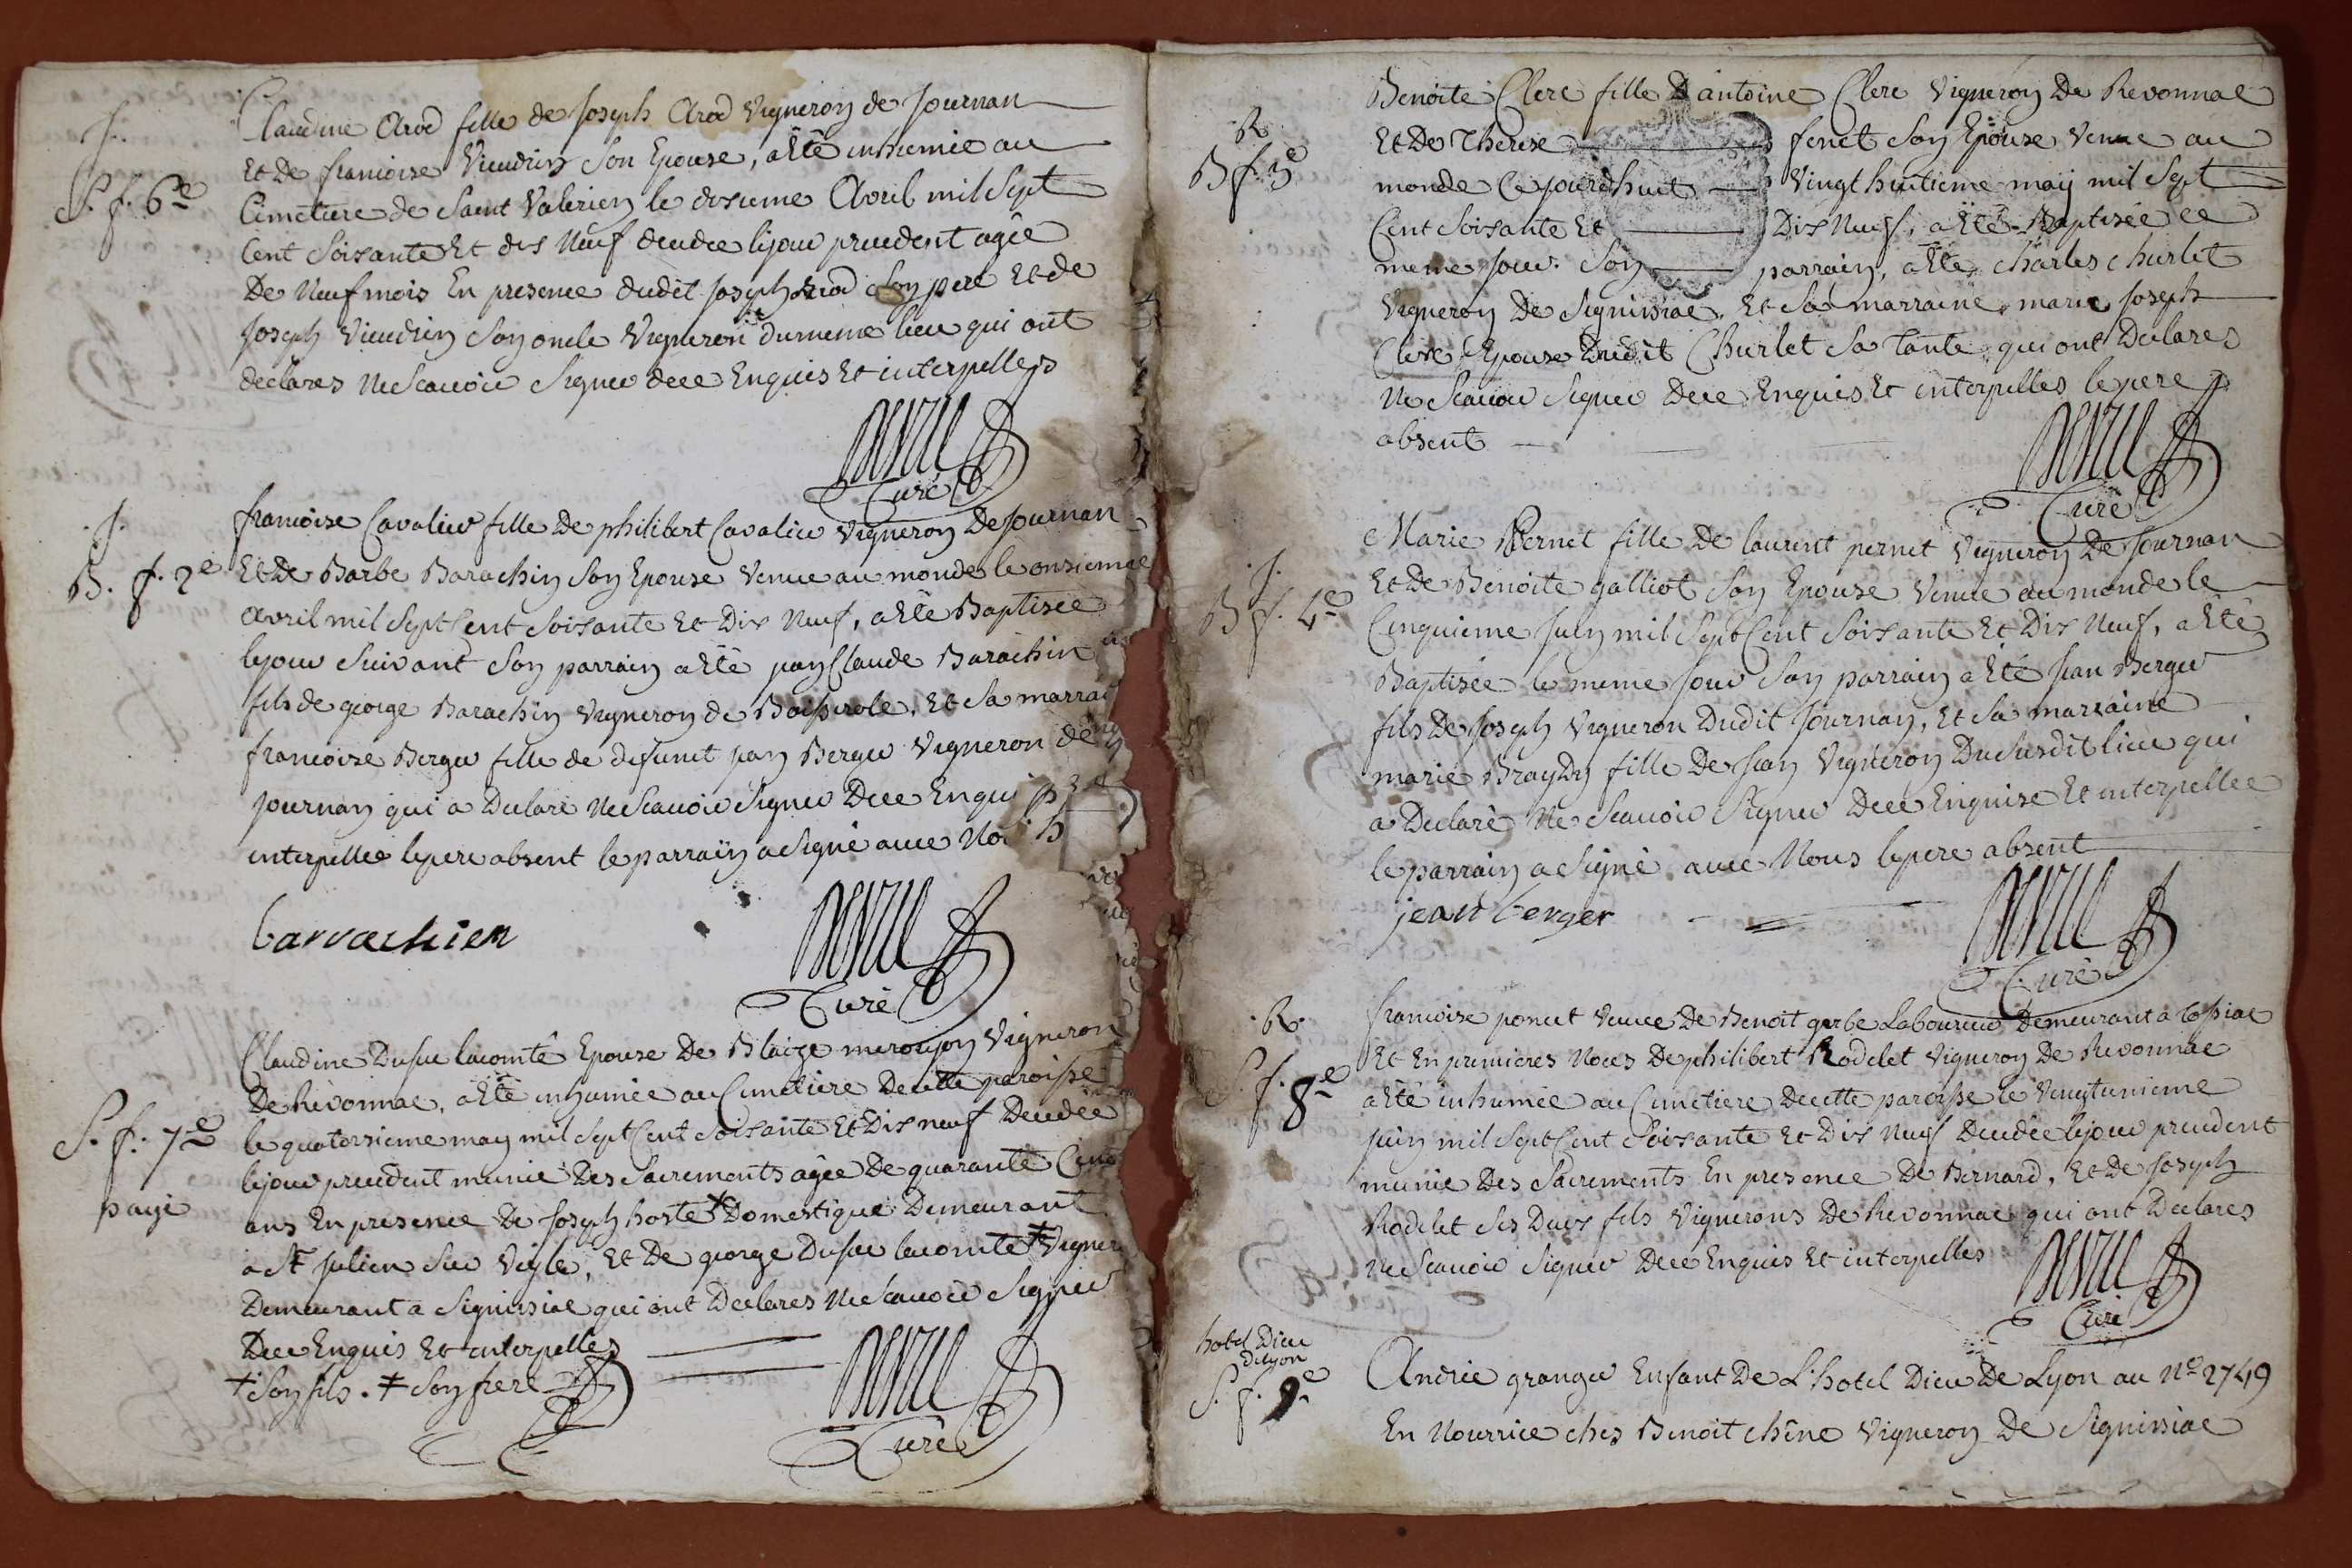 J.
S. f. 6e
Claudine Arod fille de Joseph Arod Vigneron de Journan
Et De francoise Vieudrin Son Epouse, a Eté inhumée au
Cimetiere de Saint Valerien le dixieme Avril mil Sept
Cent Soixante Et dix Neuf decedee le jour precedent agée
De Neuf mois En presence dudit Joseph Arod Son pere Et de
Joseph Vieudrin Son oncle Vigneron du meme lieu qui ont
déclarés Ne Scavoir Signer de ce Enquis Et interpellés
Devile
Curé
J.
B. f. 2e
francoise Cavalier fille De philibert Cavalier Vigneron De Journan
Et De Barbe Barachin Son Epouse Venue au monde le onzieme
avril mil Sept Cent Soixante Et Dix Neuf, a Eté Baptisée
le jour Suivant Son parrain a Eté Jean Claude Barachin
fils de george Barachin Vigneron de Boisserole, Et Sa marrai
francoise Berger fille de defunct Jean Berger Vigneron de
Journan qui a Declaré Ne Scavoir Signer De ce Enqui
interpellée le pere absent le parrain a Signé avec No
barrachien
Devile
Curé
S. f. 7e
payé
Claudine Dufur lacomte Epouse De Blaize meronjon Vigneron
De Revonnac, a Eté inhumée au Cimetiere De cette paroisse
le quatorzieme may mil Sept Cent Soixante Et Dix neuf Decedée
le jour precedent munie Des Sacrements agée De quarante Cinq
ans En presence De Joseph hoste + Domestique Demeurant
a St Julien Sur Veyle, Et De george Dufur lacomte ‡ Vigner
Demeurant a Signissiac qui ont Declarés Ne Scavoir Signer
De ce Enquis Et interpellés
+ Son fils. ‡ Son frere
Devile
Curé
R.
B f. 3e
Benoite Clerc fille D antoine Clerc Vigneron De Revonnac
Et De Therese feret Son Epouse Venue au
monde Ce jourdhuit Vingt huitieme may mil Sept
Cent Soixante Et Dix Neuf, a Eté Baptisée ce
meme Jour. Son parrain, a Eté, charles churlet
Vigneron De Signissiac, Et Sa marraine marie Joseph
Clerc Epouse Dudit Churlet Sa Tante, qui ont Declarés
Ne Scavoir Signer De ce Enquis Et interpellés le pere
absent
Devile
Curé
J.
B f. 4e
Marie Pernet fille De laurent pernet Vigneron De Journan
Et De Benoite galliot Son Epouse Venue au monde le
Cinquieme Juin mil Sept Cent Soixante Et Dix Neuf, a Eté
Baptisée le meme Jour Son parrain a Eté Jean Berger
fils De Joseph Vigneron Dudit Journan, Et Sa marraine
marie Braydy fille De Jean Vigneron Du Susdit lieu qui
a Declaré Ne Scavoir Signer De ce Enquise Et interpellée
le parrain a Signé avec Nous le pere absent
jean berger
Devile
Curé
R.
S. f. 8e
francoise poncet Veuve De Benoit gerbe Laboureur Demeurant a Tossiac
Et En premieres Noces De philibert Rodelet Vigneron De Revonnac
a Eté inhumée au Cimetiere De cette paroisse le Vingtunieme
Juin mil Sept Cent Soixante Et Dix Neuf Decedée le jour precedent
munie Des Sacrements En presence De Bernard, Et De Joseph
Rodelet Ses Deux fils Vignerons De Revonnac qui ont Declarés
Ne Scavoir Signer De ce Enquis Et interpellés
Devile
Curé
hotel Dieu
De lyon
S. f. 9e
Andrée granger Enfant De L'hotel Dieu De Lyon au No 2749
En Nourrice chés Benoit chêne Vigneron De Signissiac